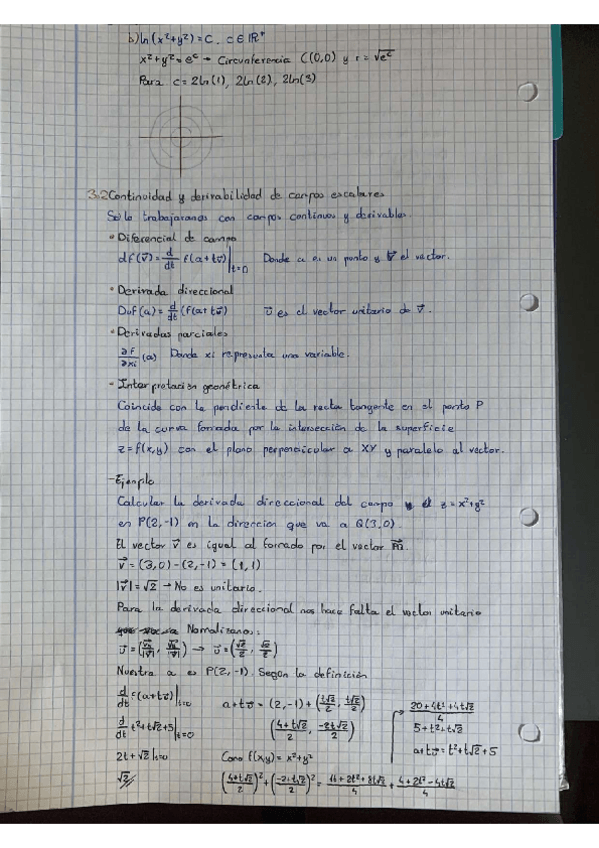 b) ln(x²+y²)=C. c∈ℝ⁺
x²+y²=e^c → Circunferencia C(0,0) y r=√e^c
Para c=2ln(1), 2ln(2), 2ln(3)
3.2 Continuidad y derivabilidad de campos escalares
Solo trabajaremos con campos continuos y derivables.
• Diferencial de campo
df(v⃗)=d/dt f(a+tv⃗)|t=0 Donde a es un punto y v⃗ el vector.
• Derivada direccional
Duf(a)=d/dt (f(a+tu⃗) u⃗ es el vector unitario de v⃗.
• Derivadas parciales
∂f/∂xi (a) Donde xi representa una variable.
- Interpretación geométrica
Coincide con la pendiente de la recta tangente en el punto P
de la curva formada por la intersección de la superficie
z=f(x,y) con el plano perpendicular a XY y paralelo al vector.
- Ejemplo
Calcular la derivada direccional del campo z=x²+y²
en P(2,-1) en la direccion que va a Q(3,0).
El vector v⃗ es igual al formado por el vector
v⃗=(3,0)-(2,-1)=(1,1)
|v⃗|=√2 → No es unitario.
Para la derivada direccional nos hace falta el vector unitario
Normalizamos:
→ u⃗=(√2/2, √2/2)
Nuestra a es P(2,-1). Segun la definición
d/dt f(a+tu⃗)|t=0 a+tu⃗=(2,-1)+(t√2/2, t√2/2) 20+4t²+4t√2/4
d/dt t²+t√2+5|t=0 (4+t√2/2, -2+t√2/2) 5+t²+t√2
2t+√2|t=0 Como f(x,y)=x²+y² a+tu⃗=t²+t√2+5
√2 (4+t√2/2)²+(-2+t√2/2)²=16+2t²+8t√2/4+4+2t²-4t√2/4